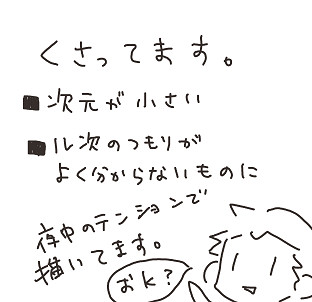 くさってます。
■次元が小さい
■ル次のつもりが
よく分からないものに
夜中のテンションで
描いてます。
おk?